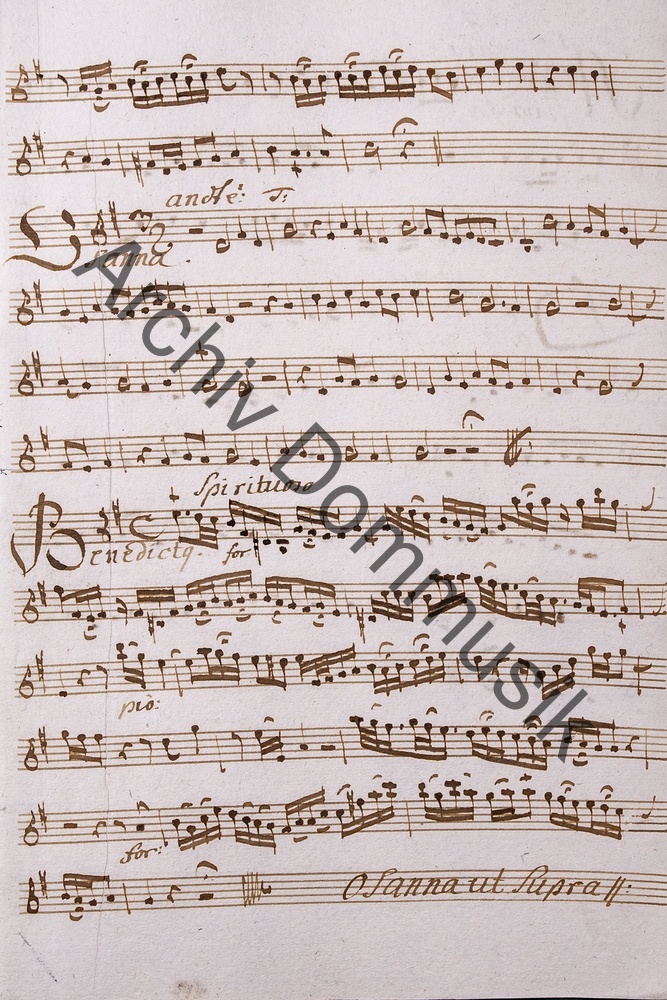 andte: T:
Osanna.
Spirituoso
Benedictq. for
pio:
for:
Osanna ut Supra //:
Archiv Dommusik